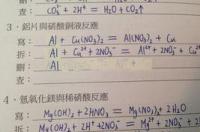 查: CO₃²⁻ + 2H⁺ = H₂O + CO₂↑
3. 鋁片與硝酸銅液反應
寫: Al + Cu(NO₃)₂ = Al(NO₃)₃ + Cu
拆: Al + Cu²⁺ + 2NO₃⁻ = Al³⁺ + 3NO₃⁻
刪: Al
查:
4. 氫氧化鎂與稀硝酸反應
寫: Mg(OH)₂ + 2HNO₃ = Mg(NO₃)₂ + 2H₂O
拆: Mg(OH)₂ + 2H⁺ + 2NO₃⁻ = Mg²⁺ + 2NO₃⁻ +